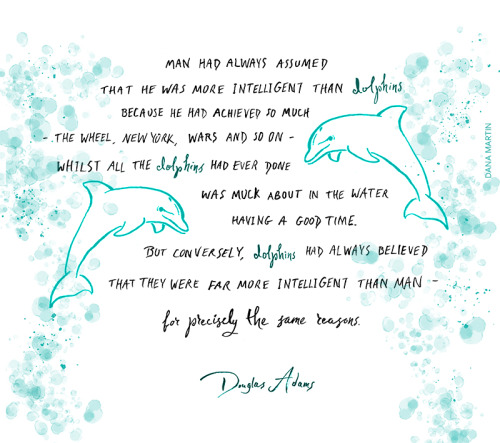 MAN HAD ALWAYS ASSUMED
THAT HE WAS MORE INTELLIGENT THAN dolphins
BECAUSE HE HAD ACHIEVED SO MUCH
- THE WHEEL, NEW YORK, WARS AND SO ON -
WHILST ALL THE dolphins HAD EVER DONE
WAS MUCK ABOUT IN THE WATER
HAVING A GOOD TIME.
BUT CONVERSELY, dolphins HAD ALWAYS BELIEVED
THAT THEY WERE FAR MORE INTELLIGENT THAN MAN -
for precisely the same reasons.
Douglas Adams
DANA MARTIN